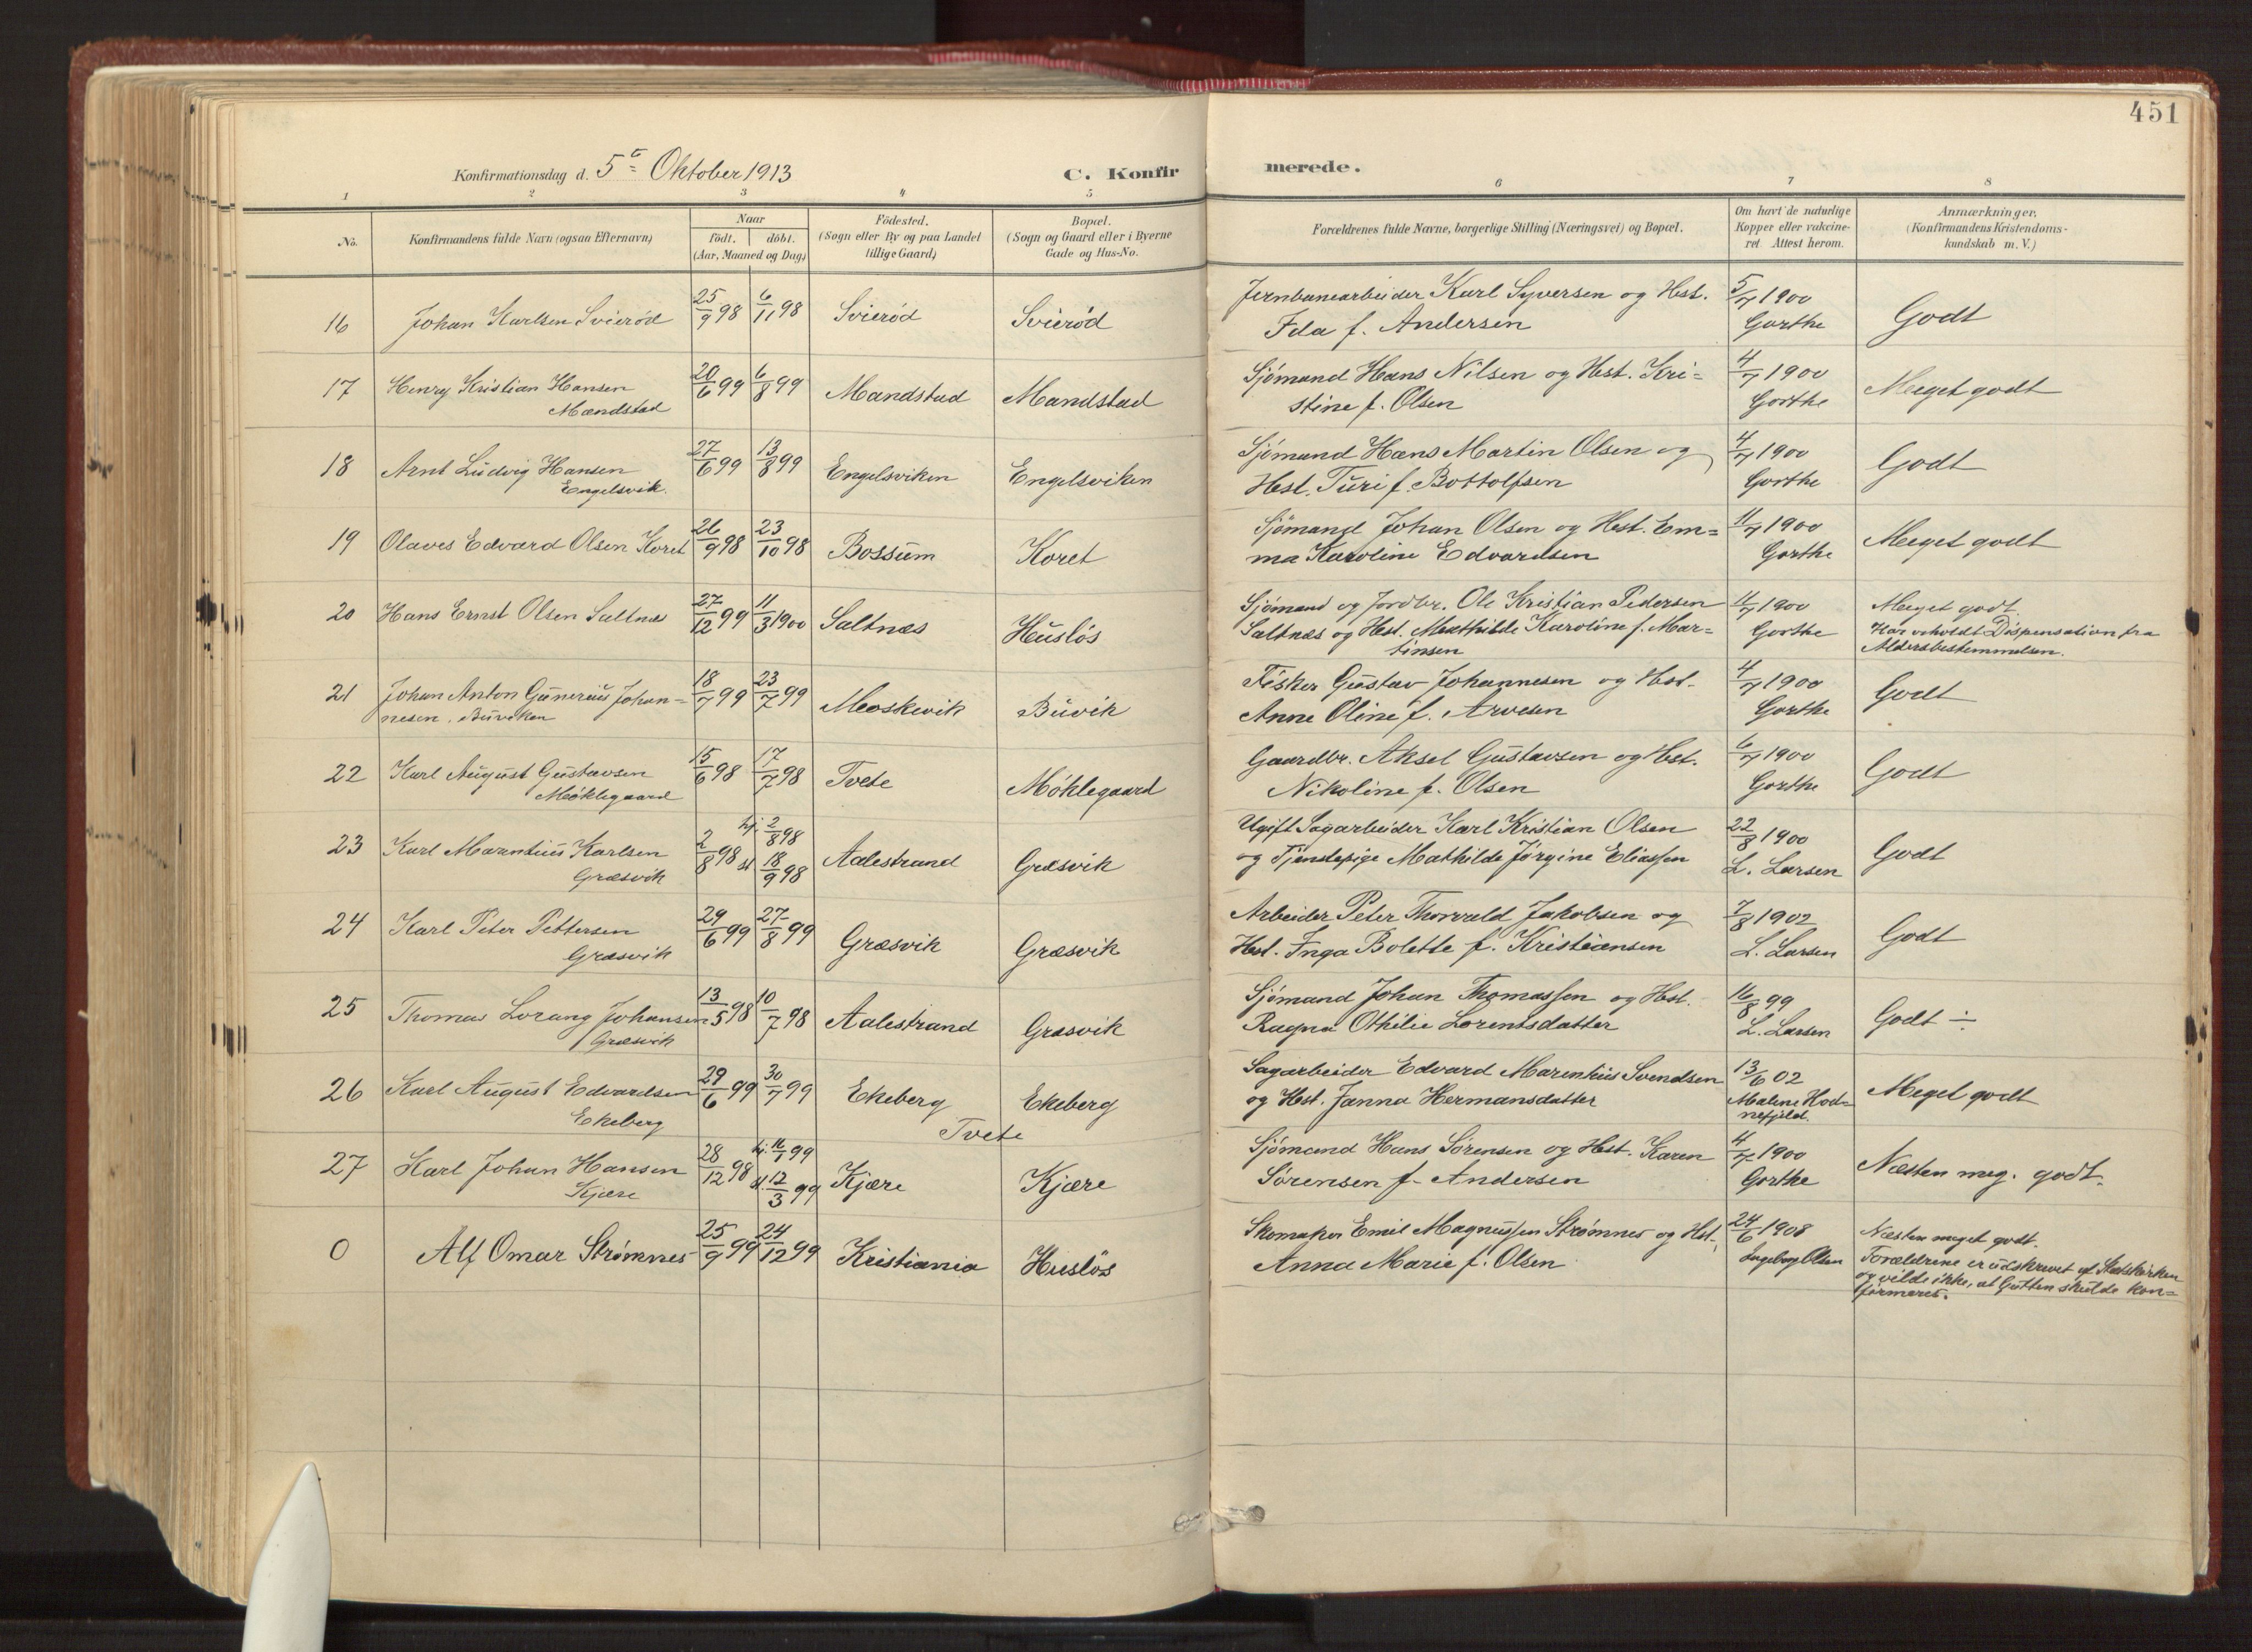 451
Konfirmationsdag d. 5te Oktober 1913
C. Konfirmerede.
1 2 3 4 5 6 7 8
No.
Konfirmandens fulde Navn (ogsaa Efternavn)
Naar
födt. | döbt.
(Aar, Maaned og Dag)
Födested.
(Sogn eller By og paa Landet
tillige Gaard)
Bopæl.
(Sogn og Gaard eller i Byerne
Gade og Hus-No.
Forældrenes fulde Navne, borgerlige Stilling (Næringsvei) og Bopæl.
Om havt de naturlige
Kopper eller vakcine-
ret. Attest herom.
Anmærkninger.
(Konfirmandens Kristendoms-
kundskab m. V.)
16 Johan Karlsen Svieröd 25/9 98 6/11 98 Svieröd Svieröd Jernbanearbeider Karl Syversen og Hst. 5/7 1900 Godt
Ida f. Andersen Gorthe
17 Henry Kristian Hansen 20/6 99 6/8 99 Mandstad Mandstad Sjömand Hans Nilsen og Hst. Kri= 4/7 1900 Meget godt
Mandstad stine f. Olsen Gorthe
18 Arnt Ludvig Hansen 27/6 99 13/8 99 Engelsviken Engelsviken Sjömand Hans Martin Olsen og 4/7 1900 Godt
Engelsvik. Hst. Turi f. Bottolfsen Gorthe
19 Olaves Edvard Olsen Koret 26/9 98 23/10 98 Bossum Koret Sjömand Johan Olsen og Hst. Em= 11/7 1900 Meget godt
ma Karoline Edvardsen Gorthe
20 Hans Ernst Olsen Saltnæs 27/12 99 11/3 1900 Saltnæs Huslös Sjömand og Jordbr. Ole Kristian Pedersen 11/7 1900 Meget godt.
Saltnæs og Hst. Mathilde Karoline f. Mar= Gorthe Har erholdt Dispensation fra
tinsen Aldersbestemmelsen.
21 Johan Anton Gunerius Johan= 18/7 99 23/7 99 Moskevik Buvik Fisker Gustav Johannesen og Hst. 4/7 1900 Godt
nesen, Buviken Anne Oline f. Arvesen Gorthe
22 Karl August Gustavsen 15/6 98 17/7 98 Tvete Möklegaard Gaardbr. Aksel Gustavsen og Hst. 6/7 1900 Godt
Möklegaard Nikoline f. Olsen Gorthe
23 Karl Marentius Karlsen 2/8 98 hj. 2/8 98 st 18/9 98 Aalestrand Græsvik Ugift Sagarbeider Karl Kristian Olsen 22/8 1900 Godt
Græsvik og Tjenstepige Mathilde Jörgine Eliassen L. Larsen
24 Karl Peter Pettersen 29/6 99 27/8 99 Græsvik Græsvik Arbeider Peter Thorvald Jakobsen og 7/8 1902 Godt
Græsvik Hst. Inga Bolette f. Kristiansen L. Larsen
25 Thomas Lorang Johansen 13/5 98 10/7 98 Aalestrand Græsvik Sjömand Johan Thomassen og Hst. 16/8 99 Godt ÷
Græsvik Ragna Othilie Lorentsdatter L. Larsen
26 Karl August Edvardsen 29/6 99 30/7 99 Ekeberg Ekeberg Sagarbeider Edvard Marentius Svendsen 13/6 02 Meget godt
Ekeberg Tvete og Hst. Janna Hermansdatter Malene Hod=
nefjeld.
27 Karl Johan Hansen 28/12 98 hj. 11/1 99 st. 12/3 99 Kjære Kjære Sjömand Hans Sörensen og Hst. Karen 4/7 1900 Næsten meg. godt.
Kjære Sörensen f. Andersen Gorthe
0 Alf Omar Strömnes 25/9 99 24/12 99 Kristiania Huslös Skomaker Emil Magnussen Strömnes og Hst. 24/6 1908 Næsten meget godt.
Anna Marie f. Olsen Ingeborg Olsen Forældrene er udskrevet af Statskirken
og vilde ikke, at Gutten skulde kon=
firmeres.